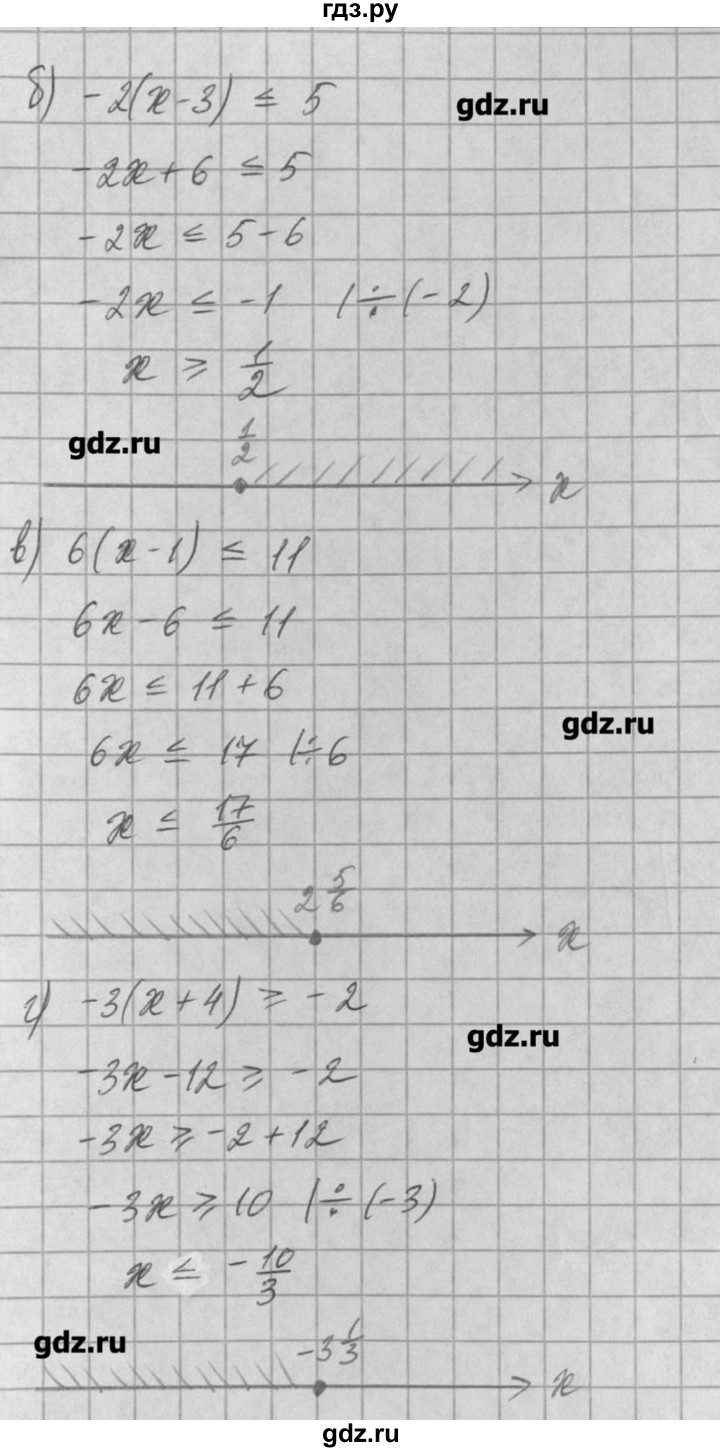 гдз.ру
б) -2(x-3) ≤ 5
gdz.ru
-2x+6 ≤ 5
-2x ≤ 5-6
-2x ≤ -1 |÷(-2)
x ≥ 1/2
gdz.ru
1/2
x
в) 6(x-1) ≤ 11
6x-6 ≤ 11
6x ≤ 11+6
gdz.ru
6x ≤ 17 |÷6
x ≤ 17/6
2 5/6
x
г) -3(x+4) ≥ -2
gdz.ru
-3x-12 ≥ -2
-3x ≥ -2+12
-3x ≥ 10 |÷(-3)
x ≤ -10/3
gdz.ru
-3 1/3
x
gdz.ru